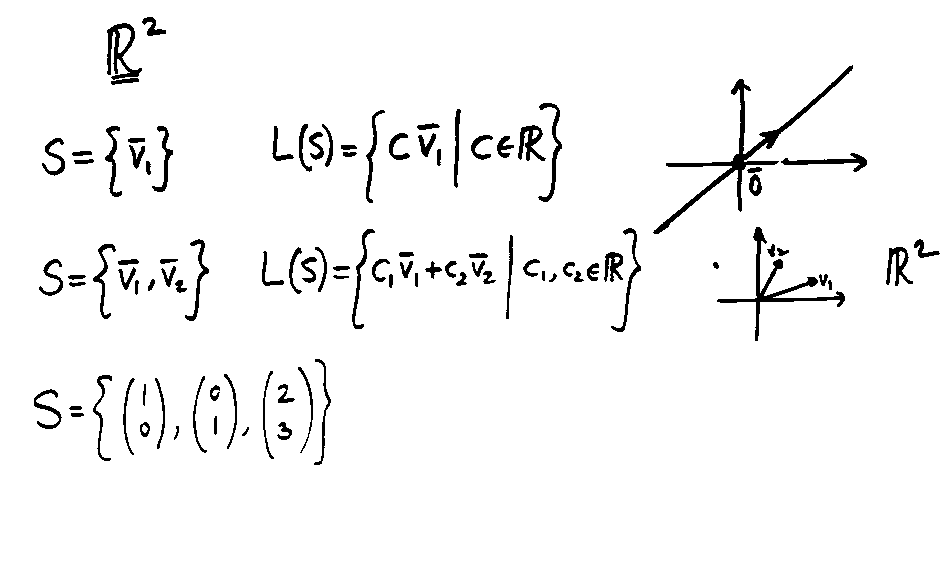 ℝ²
S = {v̄₁} L(S) = {c v̄₁ | c ∈ ℝ}
0̄
S = {v̄₁, v̄₂} L(S) = {c₁v̄₁ + c₂v̄₂ | c₁, c₂ ∈ ℝ} v₂ v₁ ℝ²
S = {(1 0), (0 1), (2 3)}